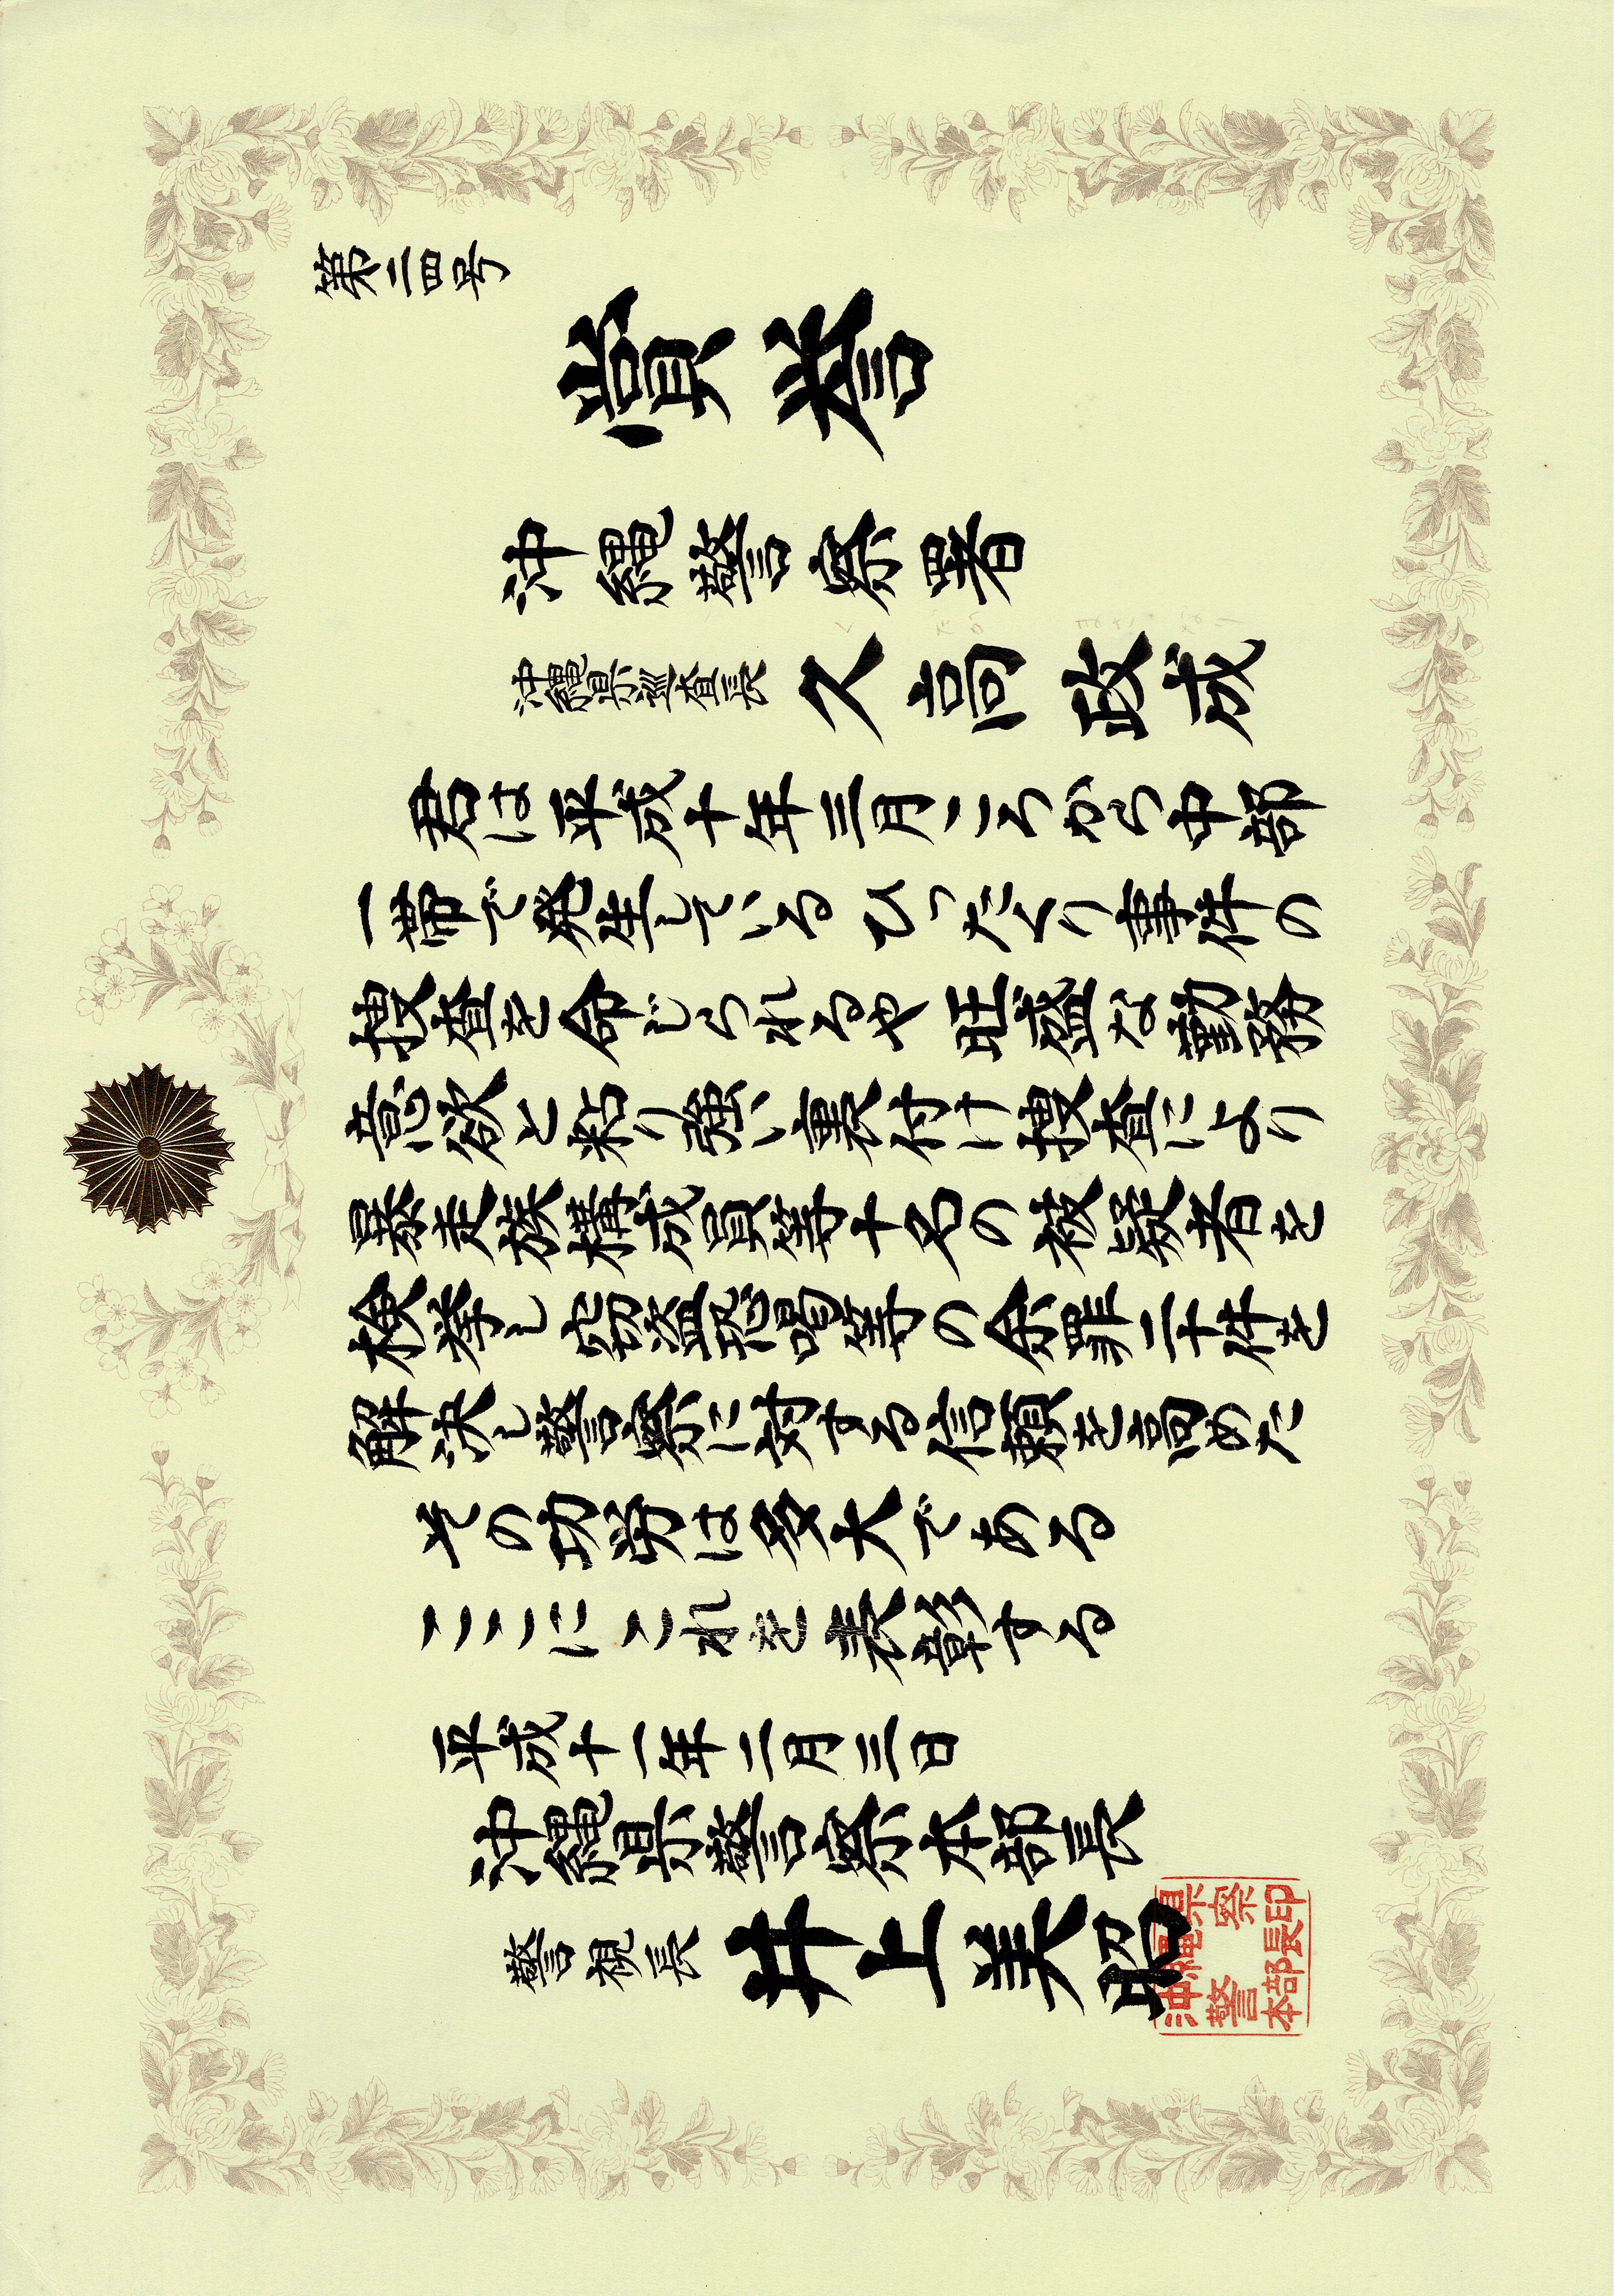 第二四号
賞誉
沖縄警察署
沖縄県巡査長 久高政成
君は平成十年三月ころから中部
一帯で発生しているひったくり事件の
捜査を命じられるや旺盛な勤務
意欲と粘り強い裏付け捜査により
暴走族構成員等十名の被疑者を
検挙し強盗恐喝等の余罪二十件を
解決し警察に対する信頼を高めた
その功労は多大である
ここにこれを表彰する
平成十一年二月三日
沖縄県警察本部長
警視長 井上美昭
沖縄県警察本部長印